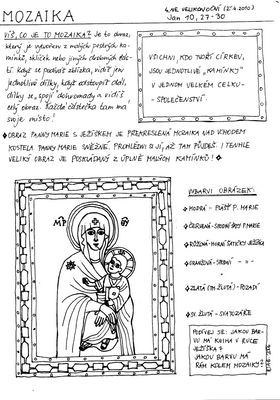 MOZAIKA
4.NE VELIKONOČNÍ (25.4.2010)
Jan 10, 27-30
VÍŠ, CO JE TO MOZAIKA? Je to obraz,
který je vytvořen z malých pestrých kamínků,
sklíček nebo jiných drobných částí.
Když se podíváš zblízka, vidíš jen
jednotlivé dílky, když odstoupíš dál,
dílky se spojí dohromady a vidíš
celý obraz. Každá částečka tam má
svoje místo!
VŠICHNI, KDO TVOŘÍ CÍRKEV,
JSOU JEDNOTLIVÉ "KAMÍNKY"
V JEDNOM VELKÉM CELKU-
SPOLEČENSTVÍ.
OBRAZ PANNY MARIE S JEŽÍŠKEM JE PŘEKRESLENÁ MOZAIKA NAD VCHODEM
KOSTELA PANNY MARIE SNĚŽNÉ. PROHLÉDNI SI JI, AŽ TAM PŮJDEŠ. I TENHLE
VELIKÝ OBRAZ JE POSKLÁDANÝ Z ÚPLNĚ MALÝCH KAMÍNKŮ!
VYBARVI OBRÁZEK:
MODRÁ - PLÁŠŤ P. MARIE
ČERVENÁ - SPODNÍ ŠATY P. MARIE
RŮŽOVÁ - HORNÍ ŠATIČKY JEŽÍŠKA
ORANŽOVÁ - SPODNÍ - " -
ZLATÁ (TM. ŽLUTÁ) - POZADÍ
SV. ŽLUTÁ - SVATOZÁŘE
PODÍVEJ SE: JAKOU BARVU
MÁ KNIHA V RUCE
JEŽÍŠKA?
JAKOU BARVU MÁ
RÁM KOLEM MOZAIKY?